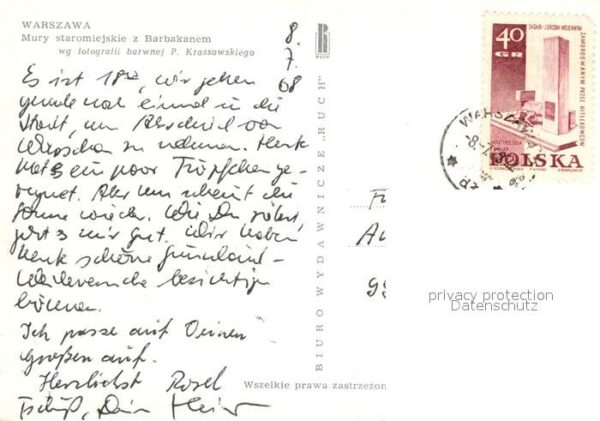 WARSZAWA
Mury staromiejskie z Barbakanem
wg fotografii barwnej P. Krassowskiego
8.
7.
68
Es ist 18⁰⁰, wir gehen
gerade noch einmal in die
Stadt, um Abschied von
Warschau zu nehmen. Heute
hat es ein paar Tröpfchen ge-
regnet. Aber nun scheint die
Sonne wieder. Wie Du siehst,
geht es mir gut. Wir haben
heute schöne
besichtigen
können.
Ich passe auf Deinen
Großen auf.
Herzlichst Rosel
Tschüß, Dein
BIURO WYDAWNICZE „RUCH"
RUCH
Wszelkie prawa zastrzeżon
40
GR
ZAMORDOWANYM PRZEZ HITLEROWCÓW
POLSKA
WARSZAWA
privacy protection
Datenschutz